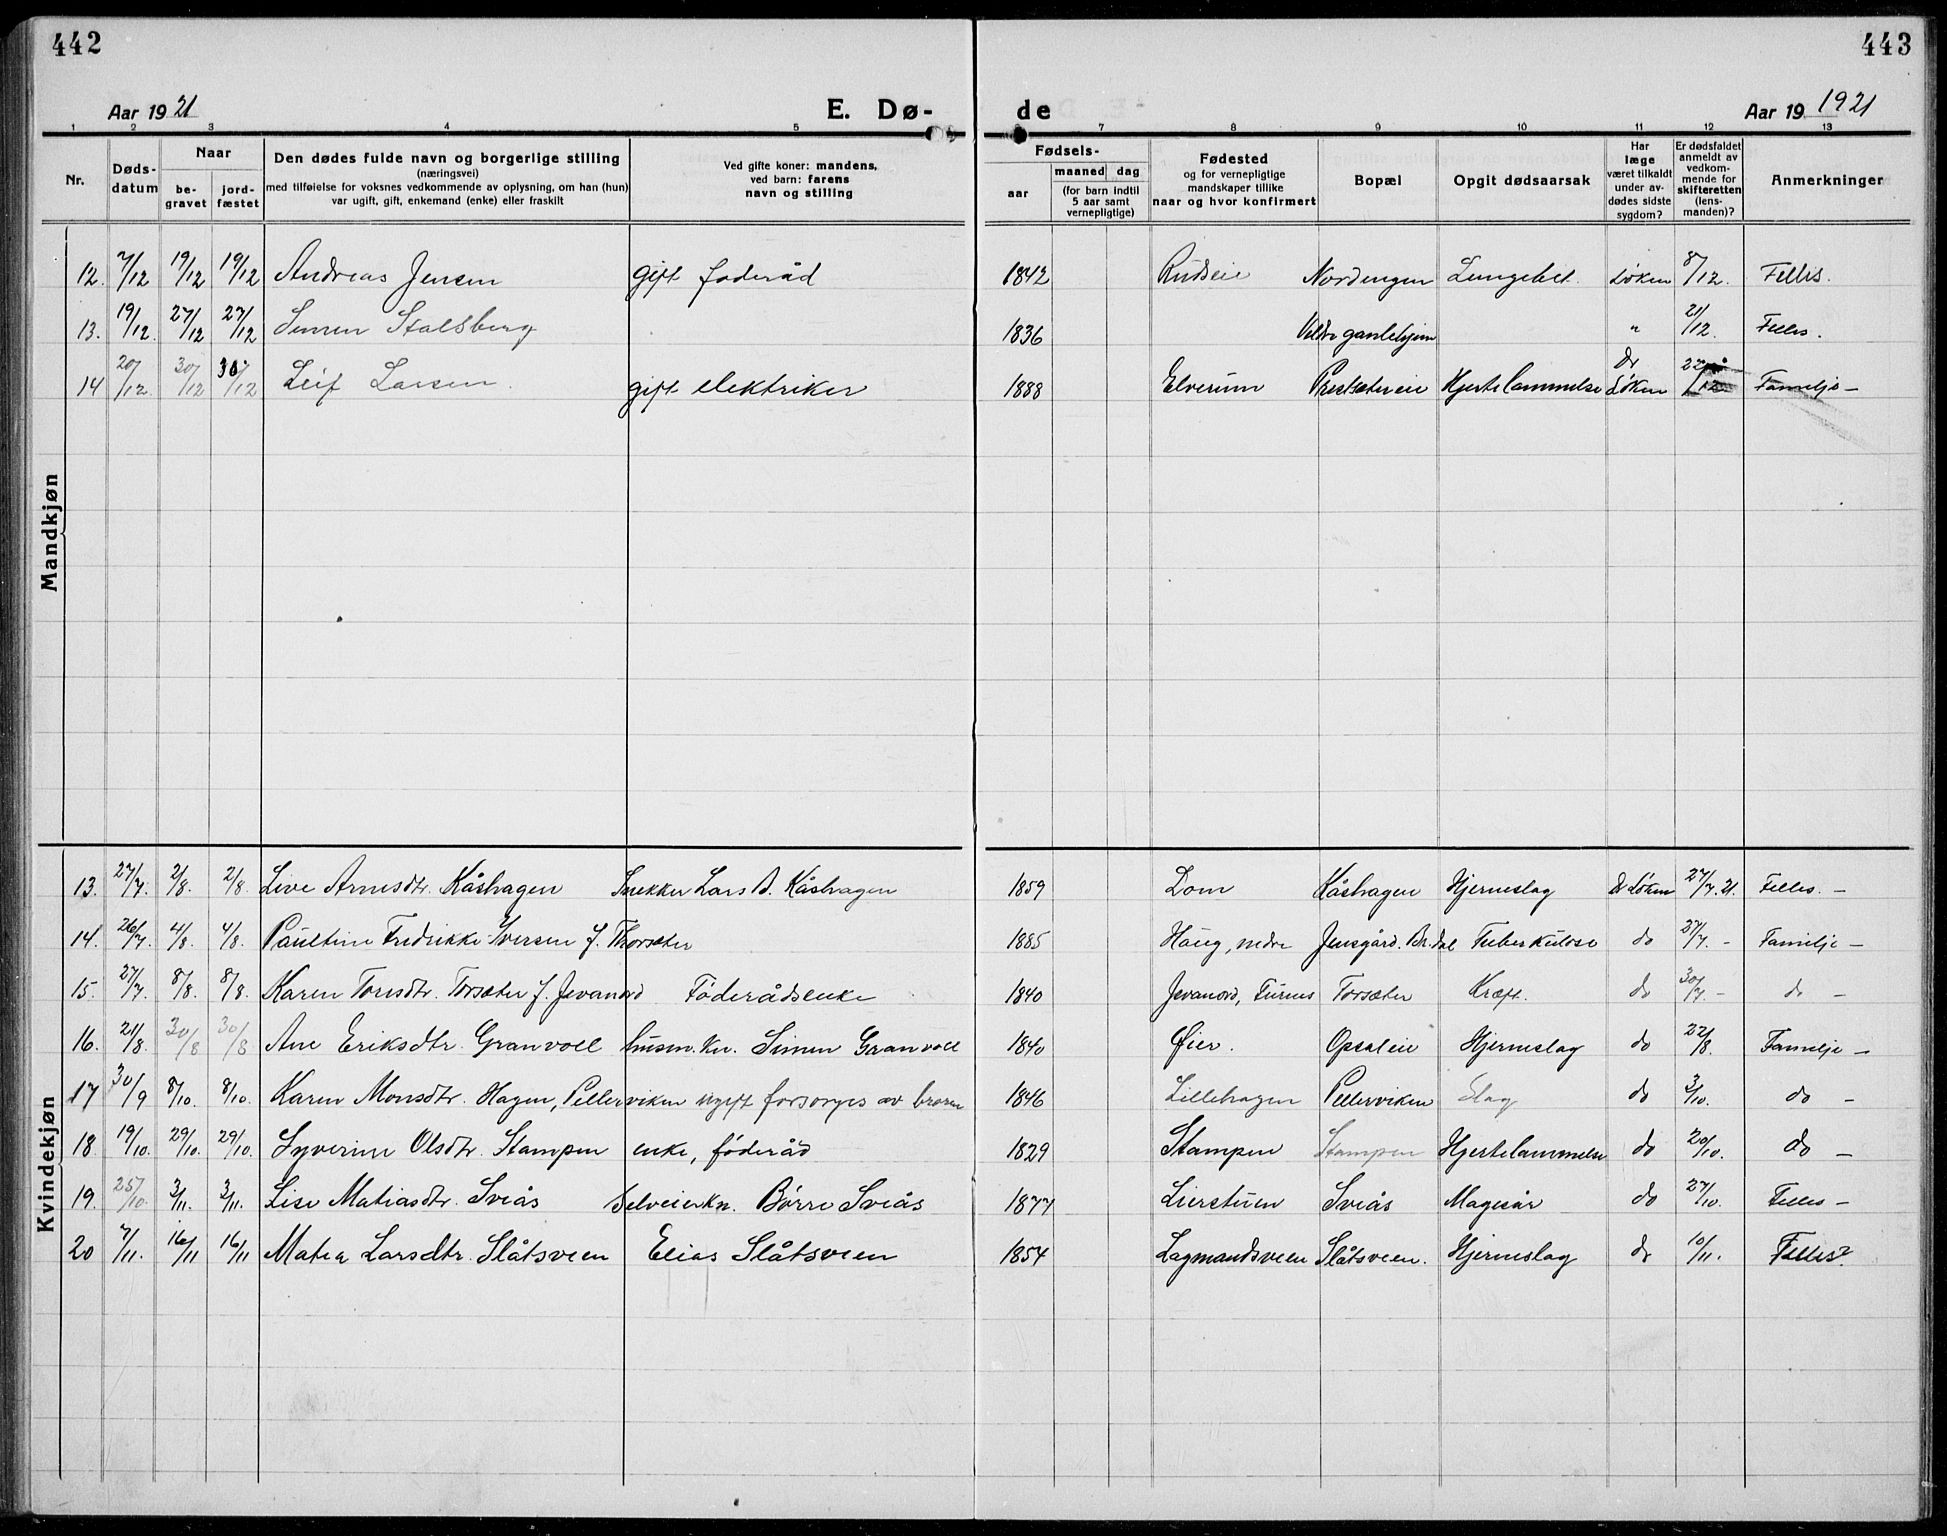 442
443
Aar 1921
E. Dø-
de
Aar 19 1921
1 2 3 4 5 6 7 8 9 10 11 12 13
Nr.
Døds-
datum
Naar
be-
gravet
jord-
fæstet
Den dødes fulde navn og borgerlige stilling
(næringsvei)
med tilføielse for voksnes vedkommende av oplysning, om han (hun)
var ugift, gift, enkemand (enke) eller fraskilt
Ved gifte koner: mandens,
ved barn: farens
navn og stilling
Fødsels-
aar
maaned dag
(for barn indtil
5 aar samt
vernepligtige)
Fødested
og for vernepligtige
mandskaper tillike
naar og hvor konfirmert
Bopæl
Opgit dødsaarsak
Har
læge
været tilkaldt
under av-
dødes sidste
sygdom?
Er dødsfaldet
anmeldt av
vedkom-
mende for
skifteretten
(lens-
manden)?
Anmerkninger
Mandkjøn
12. 7/12 19/12 19/12 Andreas Jensen gift föderåd 1842 Rudseie Nordengen Lungebet. Löken 8/12. Felles.
13. 19/12. 27/12 27/12 Simen Stalsberg 1836 Veldre gamlehjem " 21/12. Felles.
14 20/12. 30/12 30/12 Leif Larsen. gift elektriker 1888 Elverum Prestseterеie Hjertelammelse Dr Löken 22/12 Familje –
Kvindekjøn
13. 27/7. 2/8. 2/8. Live Arnesdtr. Kåshagen Snekker Lars A. Kåshagen 1859 Lom Kåshagen Hjerneslag Dr Löken 27/7. 21. Felles. –
14. 26/7. 4/8. 4/8. Paulline Fredrikke Iversen f. Thorsæter 1885 Haug, nedre Jensgård. Br.dal Tuberkulose do 27/7. – Familje –
15. 27/7. 8/8. 8/8. Karen Toresdtr. Torsæter f. Jevanord Föderådsenke 1840 Jevanord, Furnes Torsæter Kræft. do 30/7. – do –
16. 21/8. 30/8 30/8 Ane Eriksdtr. Granvoll husm.kn. Simen Granvoll 1840 Øier. Opsaleie Hjerneslag do 22/8. Familje –
17 30/9 8/10. 8/10. Karen Monsdtr. Hagen, Pellerviken ugift forsørges av broren 1846 Lillehagen Pellerviken Slag do 3/10. do –
18 19/10. 29/10. 29/10. Syverine Olsdtr. Stampen enke, föderåd 1829 Stampen Stampen Hjertelammelse do 20/10. do –
19. 25/10. 3/11. 3/11. Lise Matiasdtr. Sviås Selveierkn. Børre Sviås 1877 Lierstuen Sviås Magesår do 27/10. Felles –
20 7/11. 16/11 16/11 Matea Larsdtr. Slåtsveen Elias Slåtsveen 1854 Lagmandsveen Slåtsveen. Hjerneslag do 10/11. Felles?